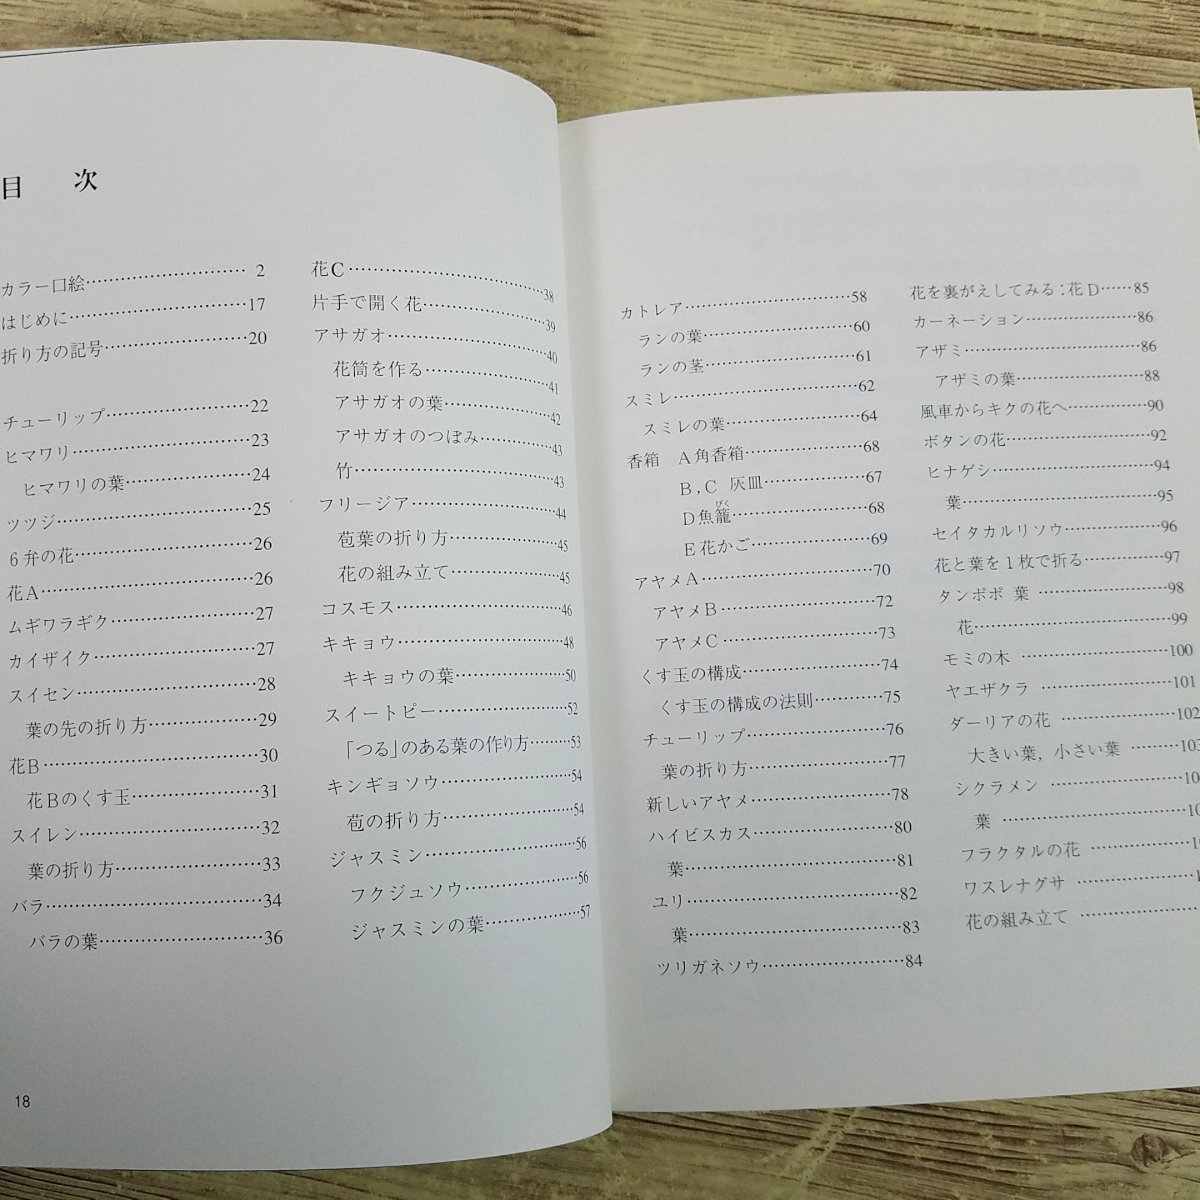 目 次
カラー口絵………………………… 2
はじめに…………………………17
折り方の記号……………………20
チューリップ……………………22
ヒマワリ…………………………23
ヒマワリの葉……………………24
ツツジ……………………………25
6弁の花…………………………26
花A………………………………26
ムギワラギク……………………27
カイザイク………………………27
スイセン…………………………28
葉の先の折り方…………………29
花B………………………………30
花Bのくす玉……………………31
スイレン…………………………32
葉の折り方………………………33
バラ………………………………34
バラの葉…………………………36
18
花C………………………………38
片手で開く花……………………39
アサガオ…………………………40
花筒を作る………………………41
アサガオの葉……………………42
アサガオのつぼみ………………43
竹…………………………………43
フリージア………………………44
苞葉の折り方……………………45
花の組み立て……………………45
コスモス…………………………46
キキョウ…………………………48
キキョウの葉……………………50
スイートピー……………………52
「つる」のある葉の作り方………53
キンギョソウ……………………54
苞の折り方………………………54
ジャスミン………………………56
フクジュソウ……………………56
ジャスミンの葉…………………57
カトレア…………………………58
ランの葉…………………………60
ランの茎…………………………61
スミレ……………………………62
スミレの葉………………………64
香箱 A角香箱……………………68
B,C 灰皿…………………………67
びく
D魚籠……………………………68
E花かご…………………………69
アヤメA…………………………70
アヤメB…………………………72
アヤメC…………………………73
くす玉の構成……………………74
くす玉の構成の法則……………75
チューリップ……………………76
葉の折り方………………………77
新しいアヤメ……………………78
ハイビスカス……………………80
葉…………………………………81
ユリ………………………………82
葉…………………………………83
ツリガネソウ……………………84
花を裏がえしてみる：花D……85
カーネーション…………………86
アザミ……………………………86
アザミの葉………………………88
風車からキクの花へ……………90
ボタンの花………………………92
ヒナゲシ…………………………94
葉…………………………………95
セイタカルリソウ………………96
花と葉を1枚で折る……………97
タンポポ 葉………………………98
花…………………………………99
モミの木 ………………………100
ヤエザクラ ……………………101
ダーリアの花 …………………102
大きい葉，小さい葉 ………103
シクラメン ……………………
葉 ………………………………
フラクタルの花 ………………
ワスレナグサ …………………
花の組み立て …………………